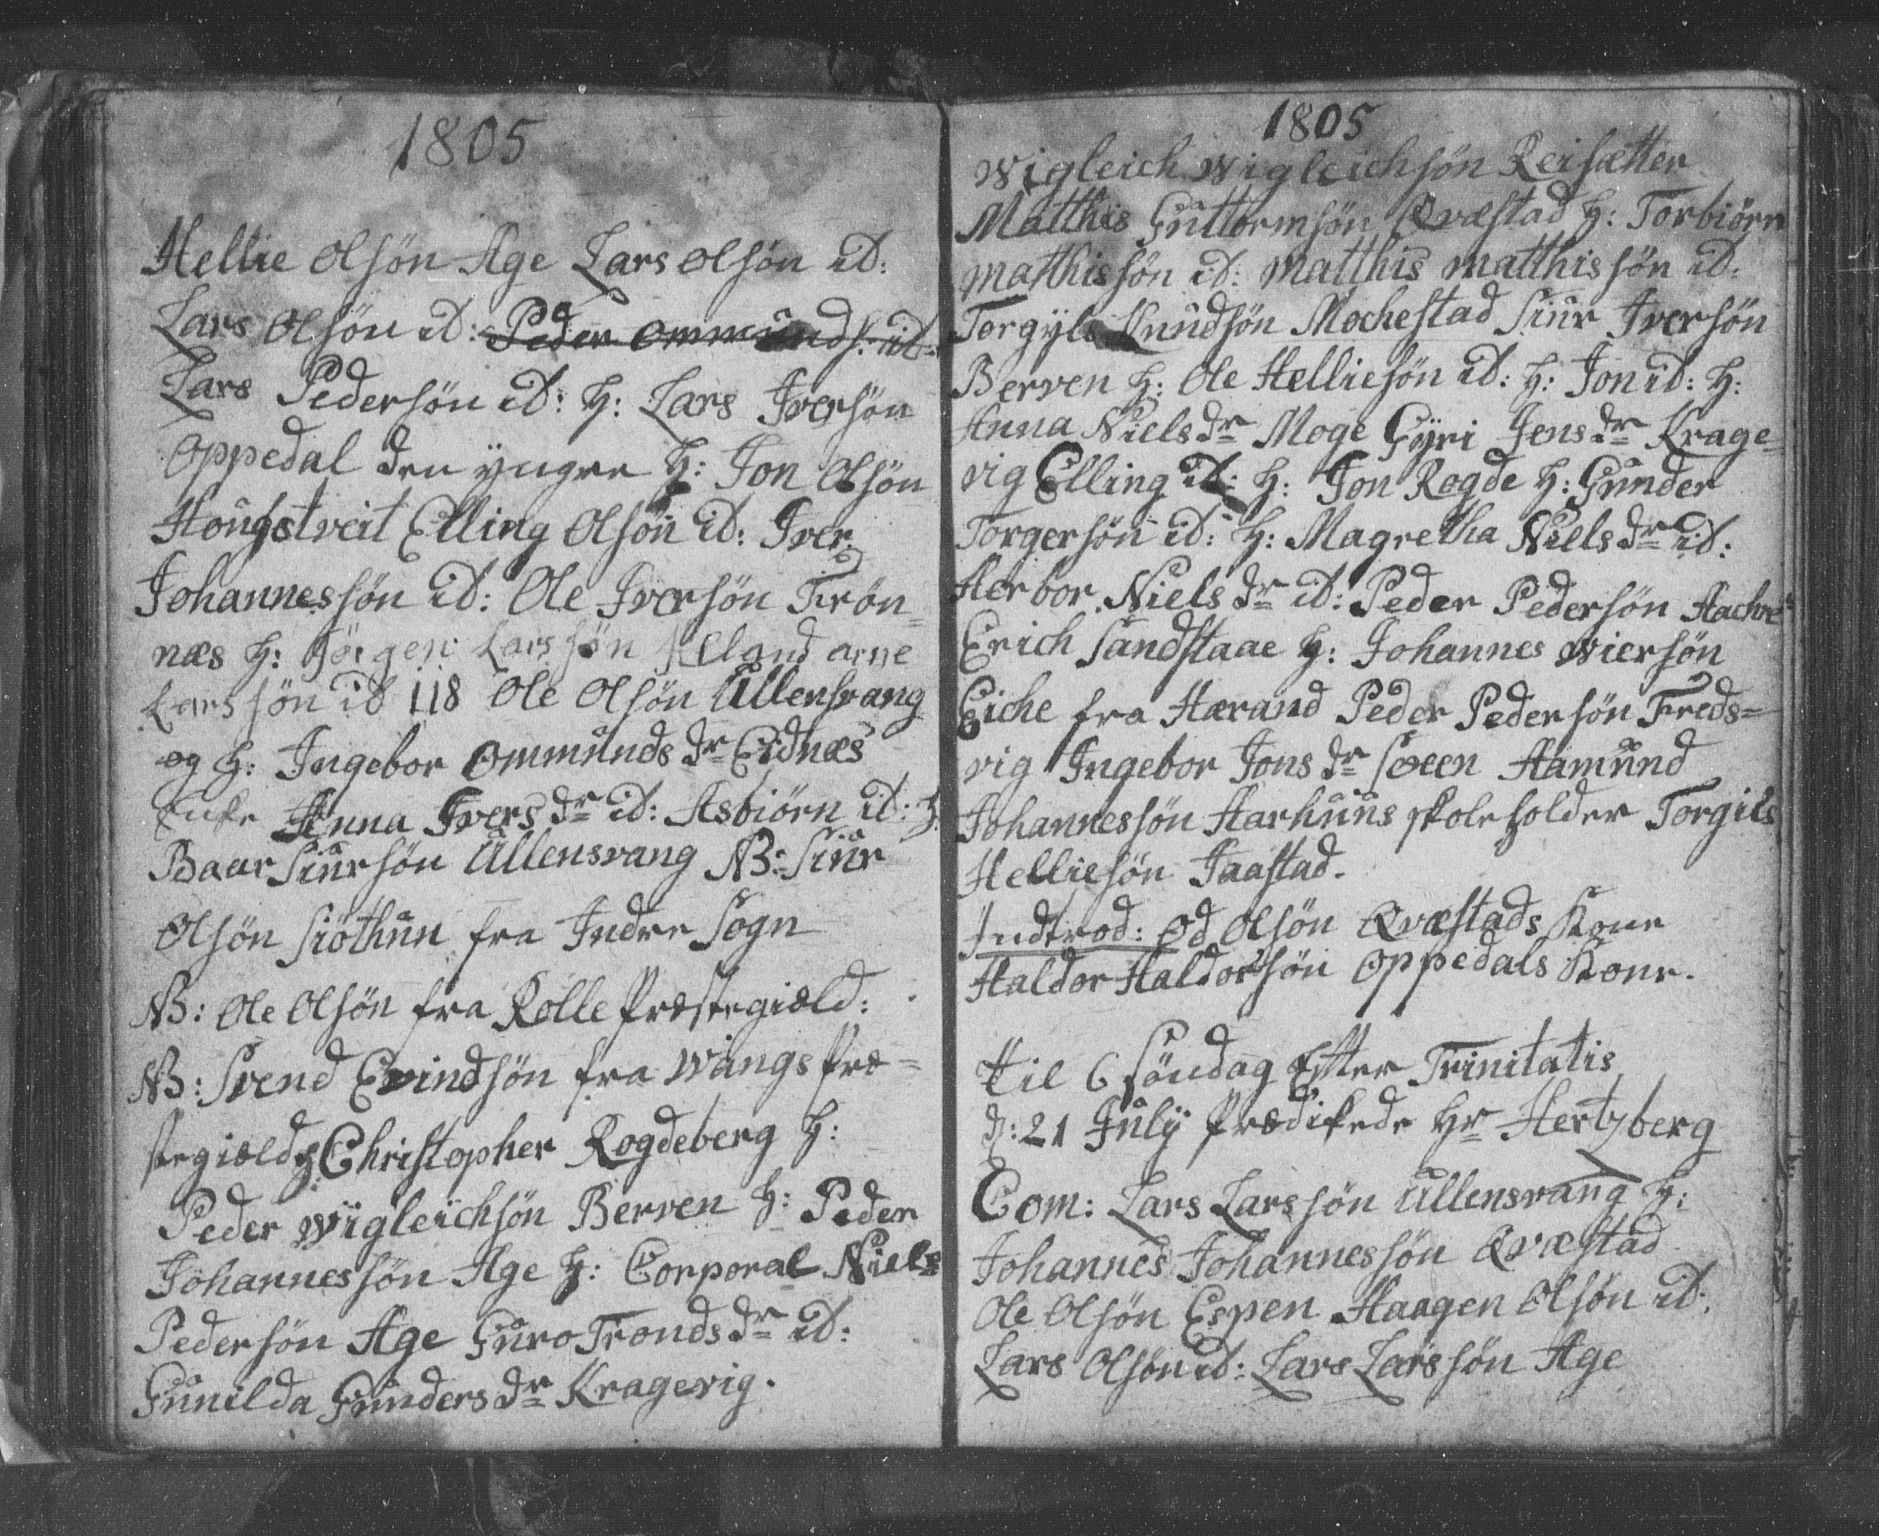 1805
Hellie Olsön Age Lars Olsön id:
Lars Olsön id: Peder Ommunds: id:
Lars Pedersön id: H: Lars Iversön
Oppedal den yngre H: Jon Olsön
Hougstveit Elling Olsön id: Iver
Johannessön id: Ole Iversön Frön=
næs H: Jörgen Larssön Alland arne
Larssön id 118 Ole Olsön Ullensvang
og H: Ingebor Ommunds dr Eidnæs
Enke Anna Ivers dr id: Asbiörn id: H:
Baar Siursön Ullensvang NB: Siur
Olsön Siöthun fra Indre Sogn
NB: Ole Olsön fra Rolle Præstegiæld:
NB: Svend Evindsön fra Wangs Præ=
stegiæld H: Christopher Rogdeberg H:
Peder Wigleichsön Berven H: Peder
Johannessön Age H: Corporal Niels
Pedersön Age Guro Tronds dr id:
Gunilda Gunders dr Kragevig.
1805
Wigleich Wigleichsön Reisætter
Matthis Guttormsön Qvæstad H: Torbiörn
Matthissön id: Matthis Matthissön id:
Torgyls Knudsön Mochestad Siur Iversön
Berven H: Ole Helliesön id: H: Jon id: H:
Anna Niels dr Moge Gyri Jens dr Krage=
vig Elling id: H: Jon Rogde H: Gunder
Torgersön id: H: Magretha Niels dr id:
Herbor Niels dr id: Peder Pedersön Aachre
Erich Sandstaae H: Johannes Wiersön
Eiche fra Hærand Peder Pedersön Freds=
vig Ingebor Jons dr Sexen Hamund
Johannessön Aarhuus skoleholder Torgils
Helliesön Jaastad.
Indtrod: Od Olsön Qvæstads Kone
Haldor Haldorsön Oppedals Kone.
Til 6 Söndag Efter Trinitatis
d: 21 July Prædikede Hr Hertzberg
Com: Lars Larssön Ullensvang H:
Johannes Johannessön Qvæstad
Ole Olsön Espen Haagen Olsön id:
Lars Olsön id: Lars Larssön Age